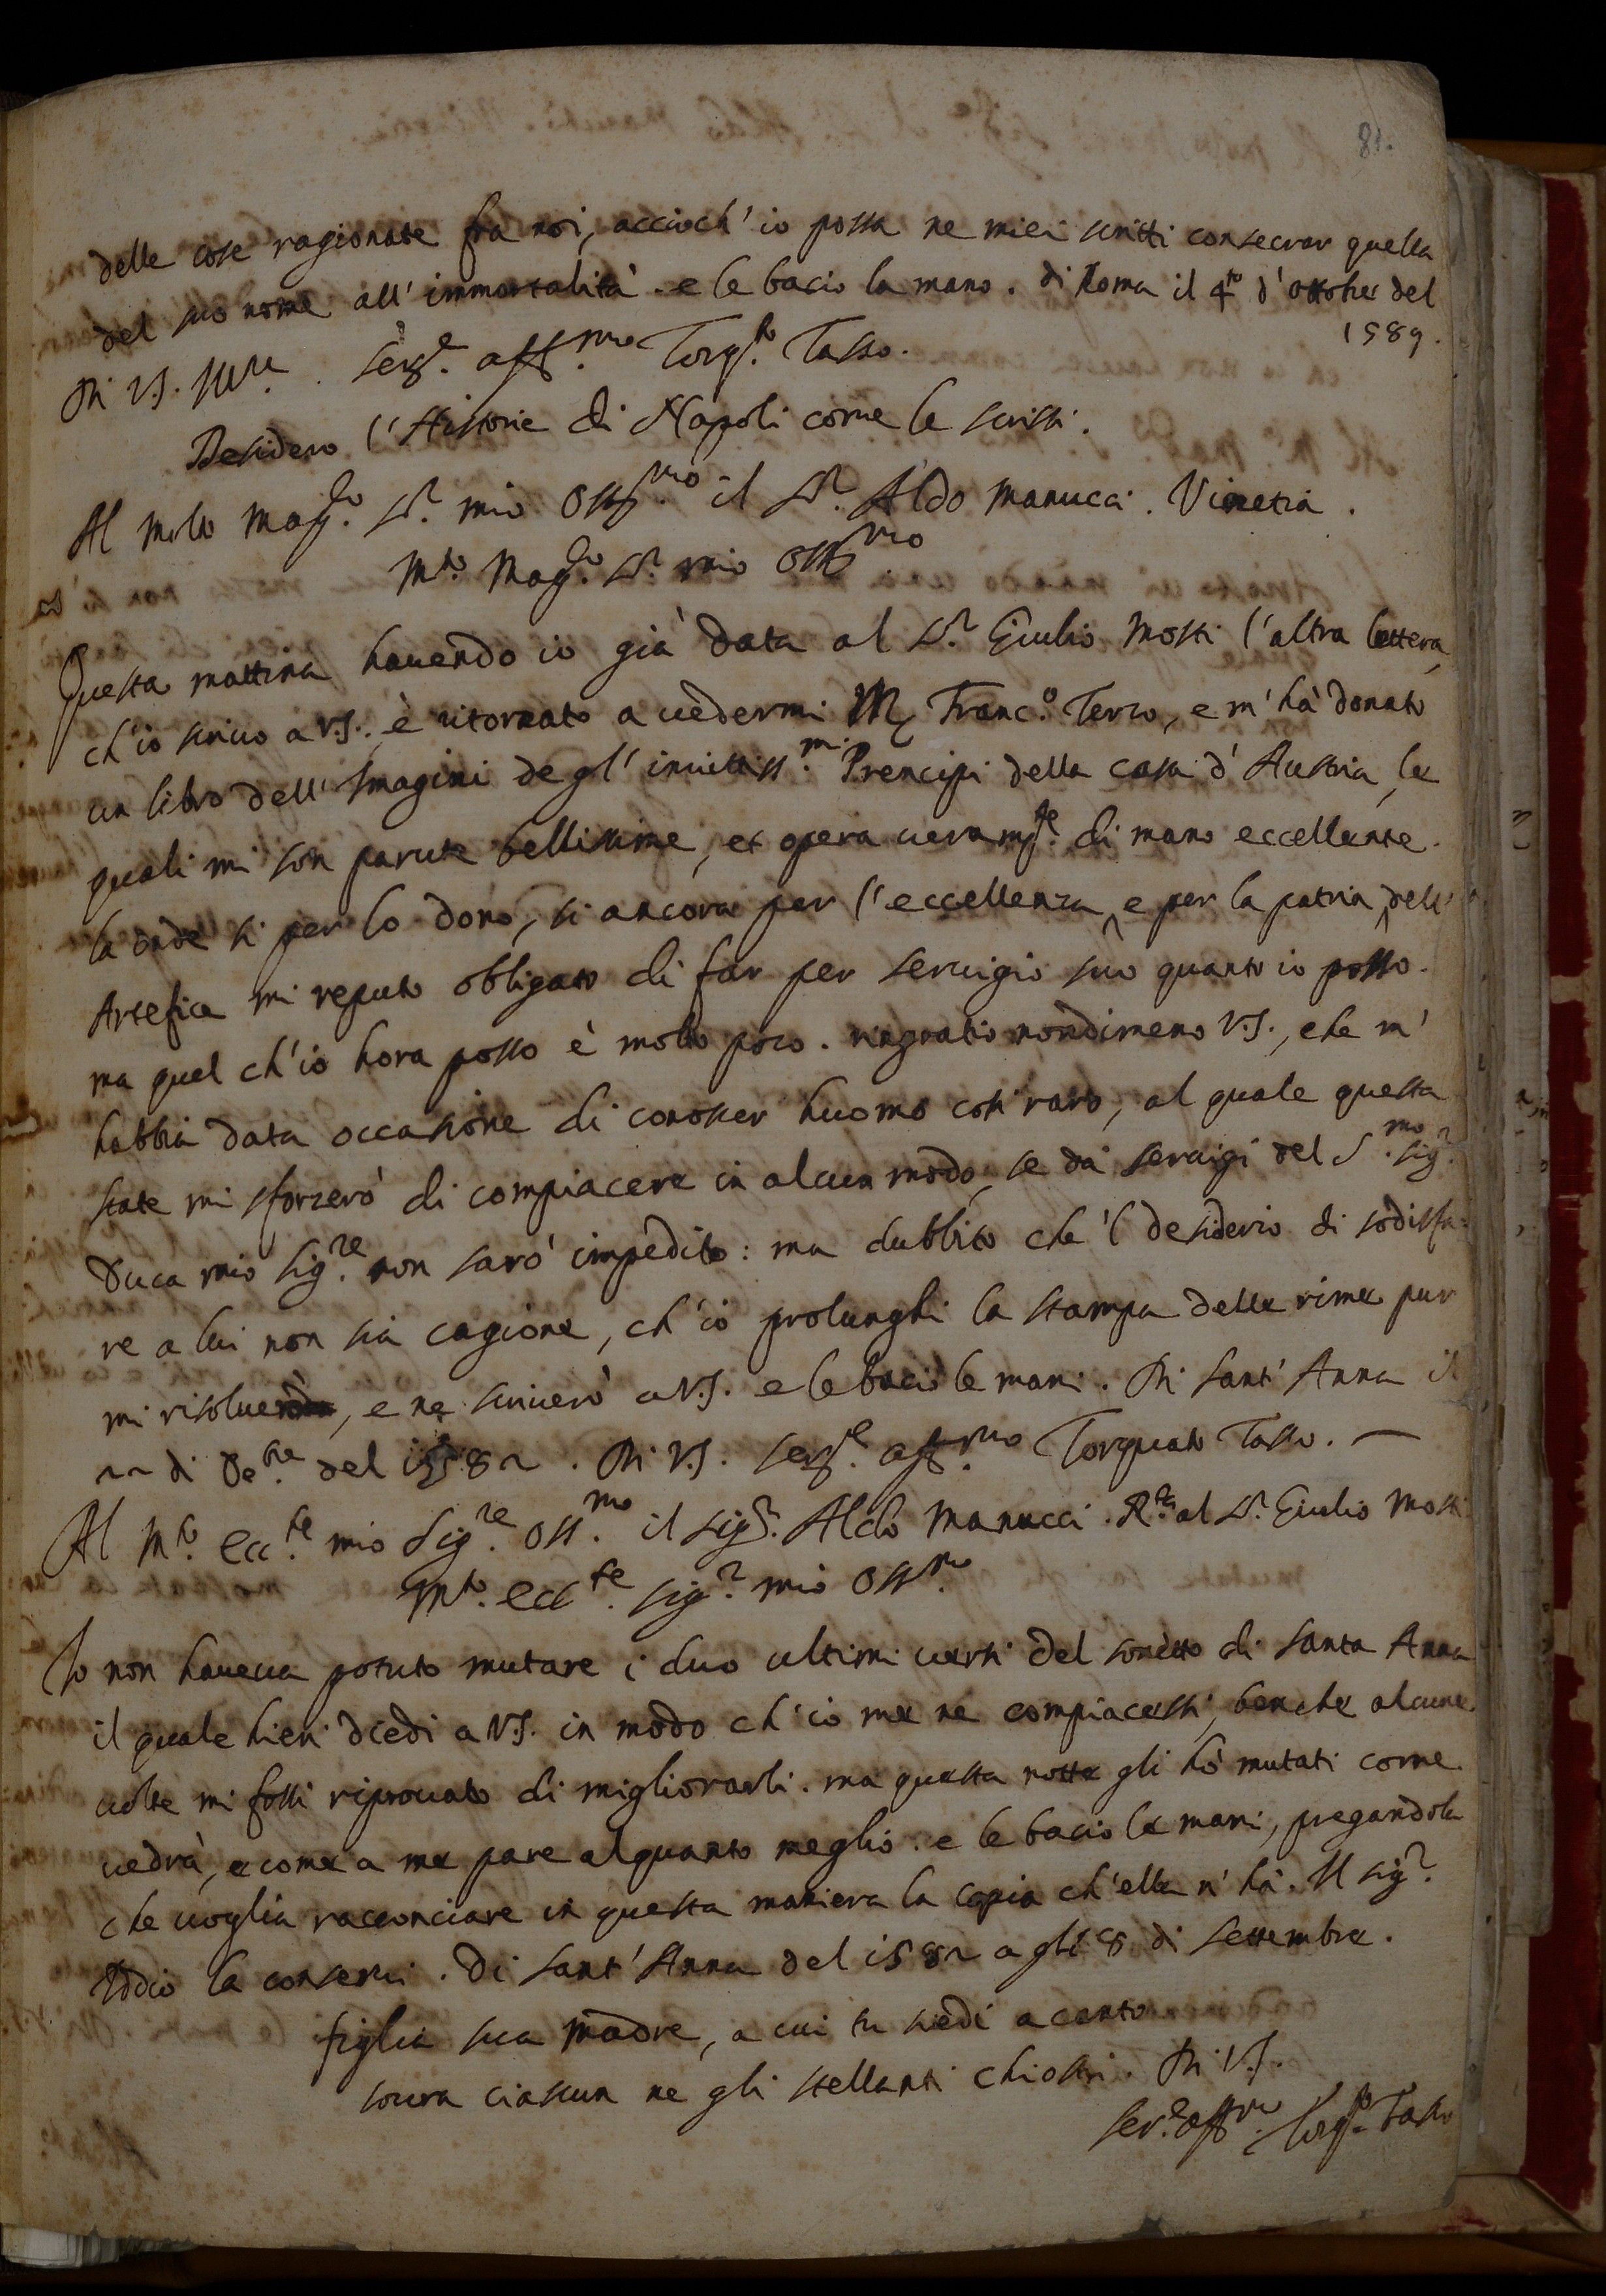 81.
delle cose ragionate fra noi, accioch'io possa ne miei scritti consecrar quella
del suo nome all'immortalità. e le bacio la mano. di Roma il 4.to d'ottobre del
1589.
Di V.S. Ill.re. ser.e aff.mo Torq.to Tasso.
Desidero l'Historie di Napoli come le scrissi.
Al molto mag.co S.r mio oss.mo il S.r Aldo Manucci. Vinetia.
M.to Mag.co S.r mio oss.mo
Questa mattina havendo io già data al S.r Giulio Mosti l'altra lettera,
ch'io scrivo a V.S., è ritornato a vedermi M. Franc.o Terzo, e m'hà donato
un libro dell'Imagini degl'invittiss.mi Prencipi della casa d'Austria, le
quali mi son parute bellissime, et opera veram.te di mano eccellente.
la onde si per lo dono, si ancora per l'eccellenza, e per la patria dell'
Artefice mi reputo obligato di far per servigio suo quanto io posso.
ma quel ch'io hora posso è molto poco. ringratio nondimeno V.S., che m'
habbia data occasione di conoscer huomo così raro, al quale questa
state mi sforzerò di compiacere in alcun modo, se da servigi del S.mo sig.r
Duca mio sig.re non sarò impedito: ma dubbito che 'l desiderio di sodisfa=
re a lui non sia cagione, ch'io prolunghi la stampa delle rime pur
mi risolverò, e ne scriverò a V.S. e le bacio le mani. Di Sant'Anna il
22 di del 1582. Di V.S. ser.e aff.mo Torquato Tasso. —
Al M.to ecc.te mio Sig.re oss.mo il sig.r Aldo Manucci. al S.r Giulio Mosti
M.to ecc.te sig.r mio oss.mo
Io non haveva potuto mutare i duo ultimi versi del sonetto di santa Anna
il quale hieri diedi a V.S. in modo ch'io me ne compiacessi, benche alcune
volte mi fossi riprovato di migliorarli. ma questa notte gli hò mutati come
vedrà, e come a me pare alquanto meglio. e le bacio le mani, pregandola
che voglia racconciare in questa maniera la copia ch'ella n'hà. Il sig.r
Iddio la conservi. Di Sant'Anna del 1582 agli 8 di settembre.
figlia sua madre, a cui tu siedi a canto
sovra ciascun ne gli stellanti chiostri. Di V.S.
ser.e aff.mo Torq.to Tasso